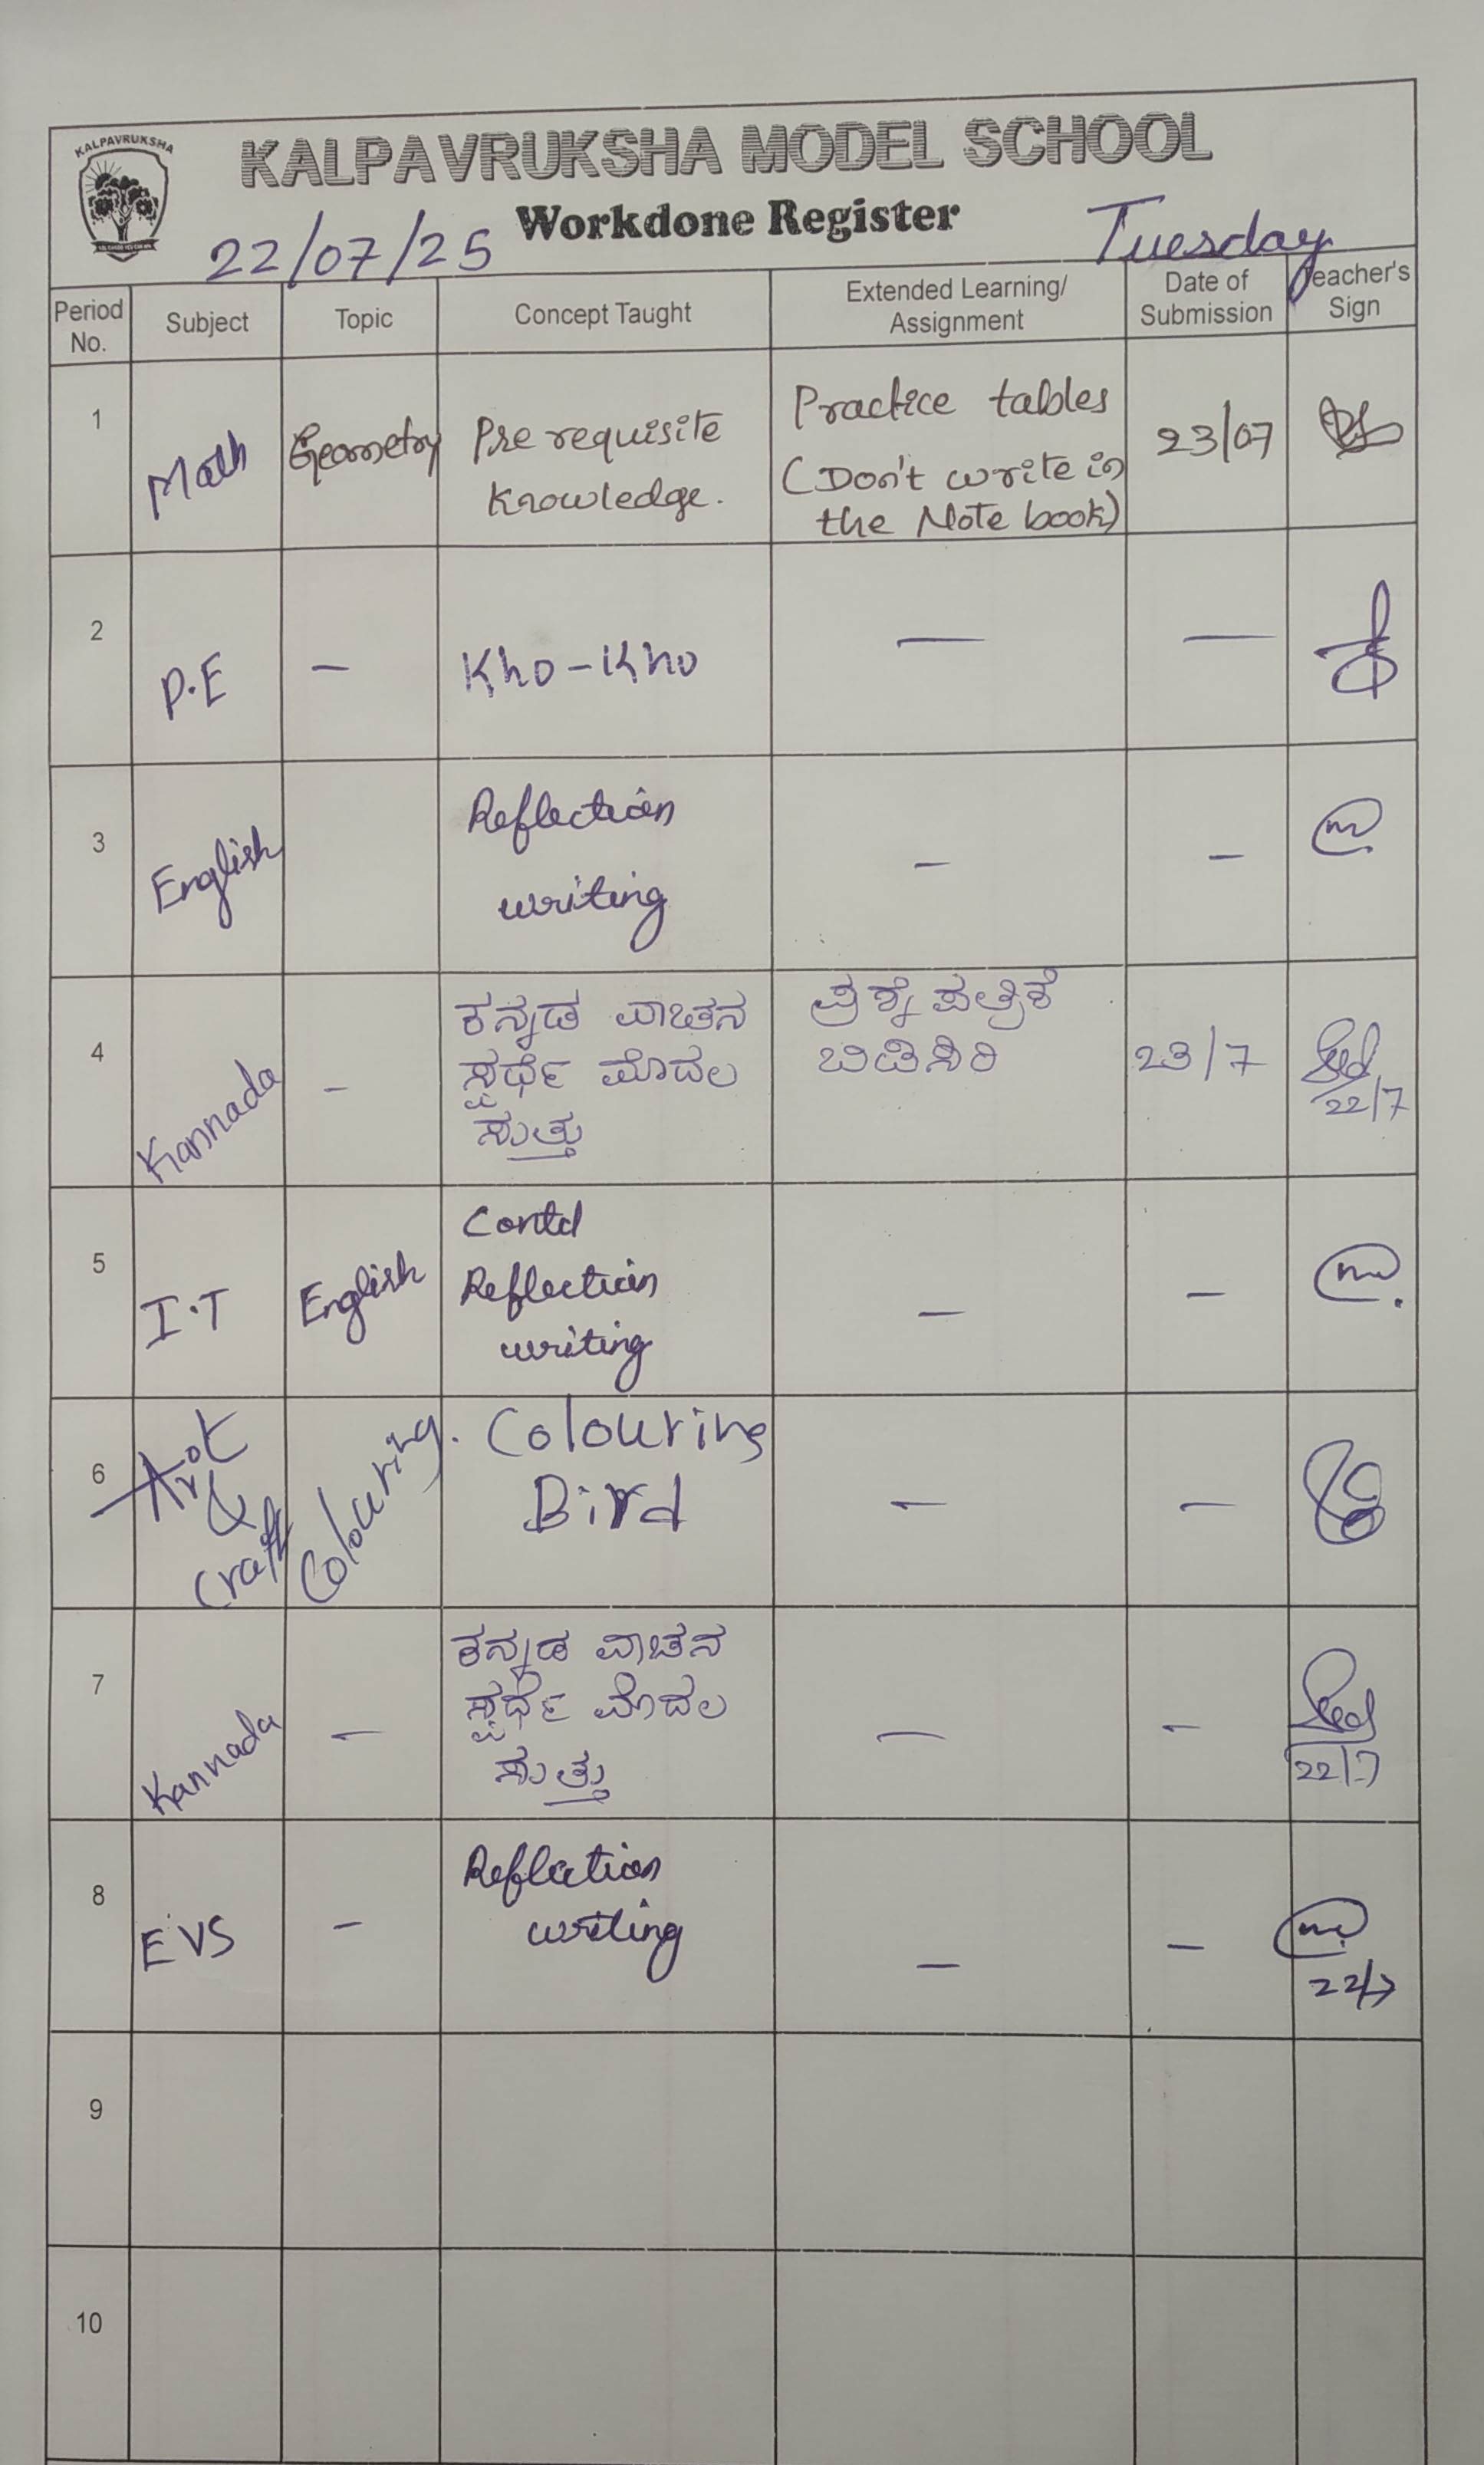 KALPAVRUKSHA
KALPAVRUKSHA MODEL SCHOOL
Workdone Register
22/07/25
Tuesday
Period No.
Subject
Topic
Concept Taught
Extended Learning/
Assignment
Date of
Submission
Teacher's
Sign
1
Math
Geometry
Pre requisite
Knowledge.
Practice tables
(Don't write in
the Note book)
23/07
2
P.E
—
Kho-Kho
—
—
3
English
Reflection
writing
—
—
4
Kannada
—
ಕನ್ನಡ ವಾಚನ
ಸ್ಪರ್ಧೆ ಮೊದಲ
ಸುತ್ತು
ಪ್ರಶ್ನೆ ಪತ್ರಿಕೆ
ಬಿಡಿಸಿರಿ
23/7
22/7
5
I.T
English
Contd
Reflection
writing
—
—
6
Art
&
Craft
Colouring.
Colouring
Bird
—
—
7
Kannada
—
ಕನ್ನಡ ವಾಚನ
ಸ್ಪರ್ಧೆ ಮೊದಲ
ಸುತ್ತು
—
—
22/7
8
EVS
—
Reflection
writing
—
—
22/7
9
10